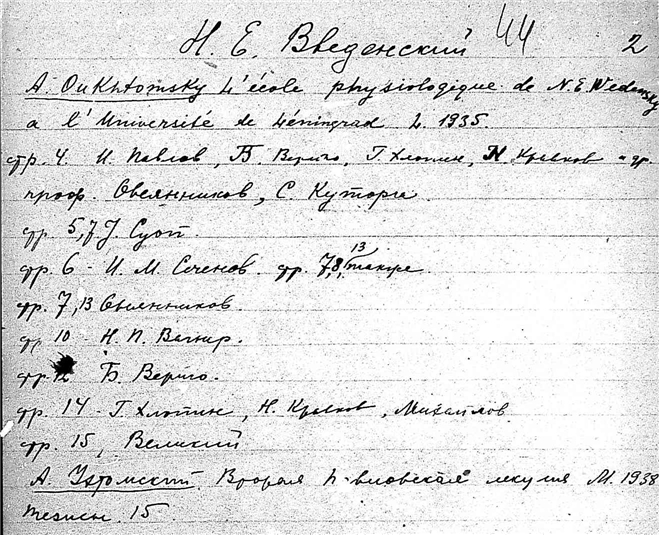 44
Н. Е. Введенский 2
A. Oukhtomsky L'école physiologique de N. E. Wedensky
a l'Université de Léningrad L. 1935.
стр. 4. И. Павлов, Б. Вериго, Г. Хлопин, Н. Кравков и др.
проф. Овсянников, С. Куторга
стр. 5, 7 J. Суоп.
13
стр. 6 - И. М. Сеченов. стр. 7, 8, также
стр. 7, 13 Овсянников.
стр 10 - Н. П. Вагнер.
стр. 12 Б. Вериго.
стр. 14 - Г. Хлопин, Н. Кравков, Михайлов
стр. 15, Великий
А. Ухтомский. Вторая П-вловская лекция М. 1938
тезисы. 15.